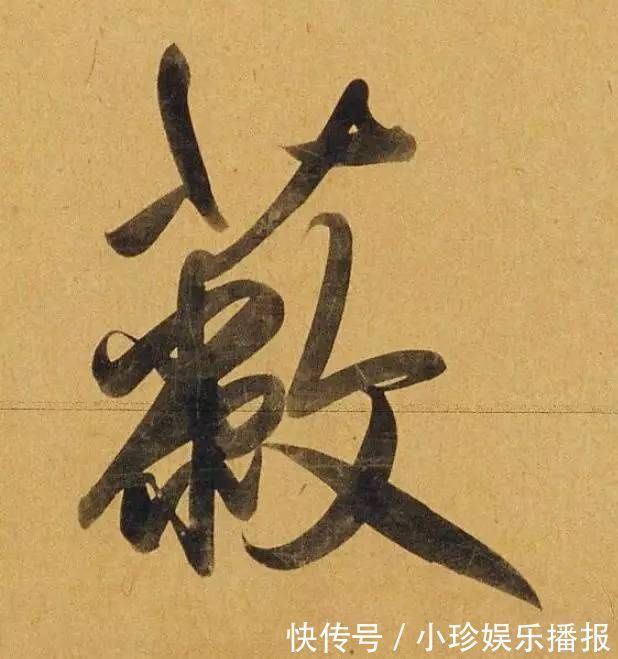 蔽
快传号 / 小珍娱乐播报